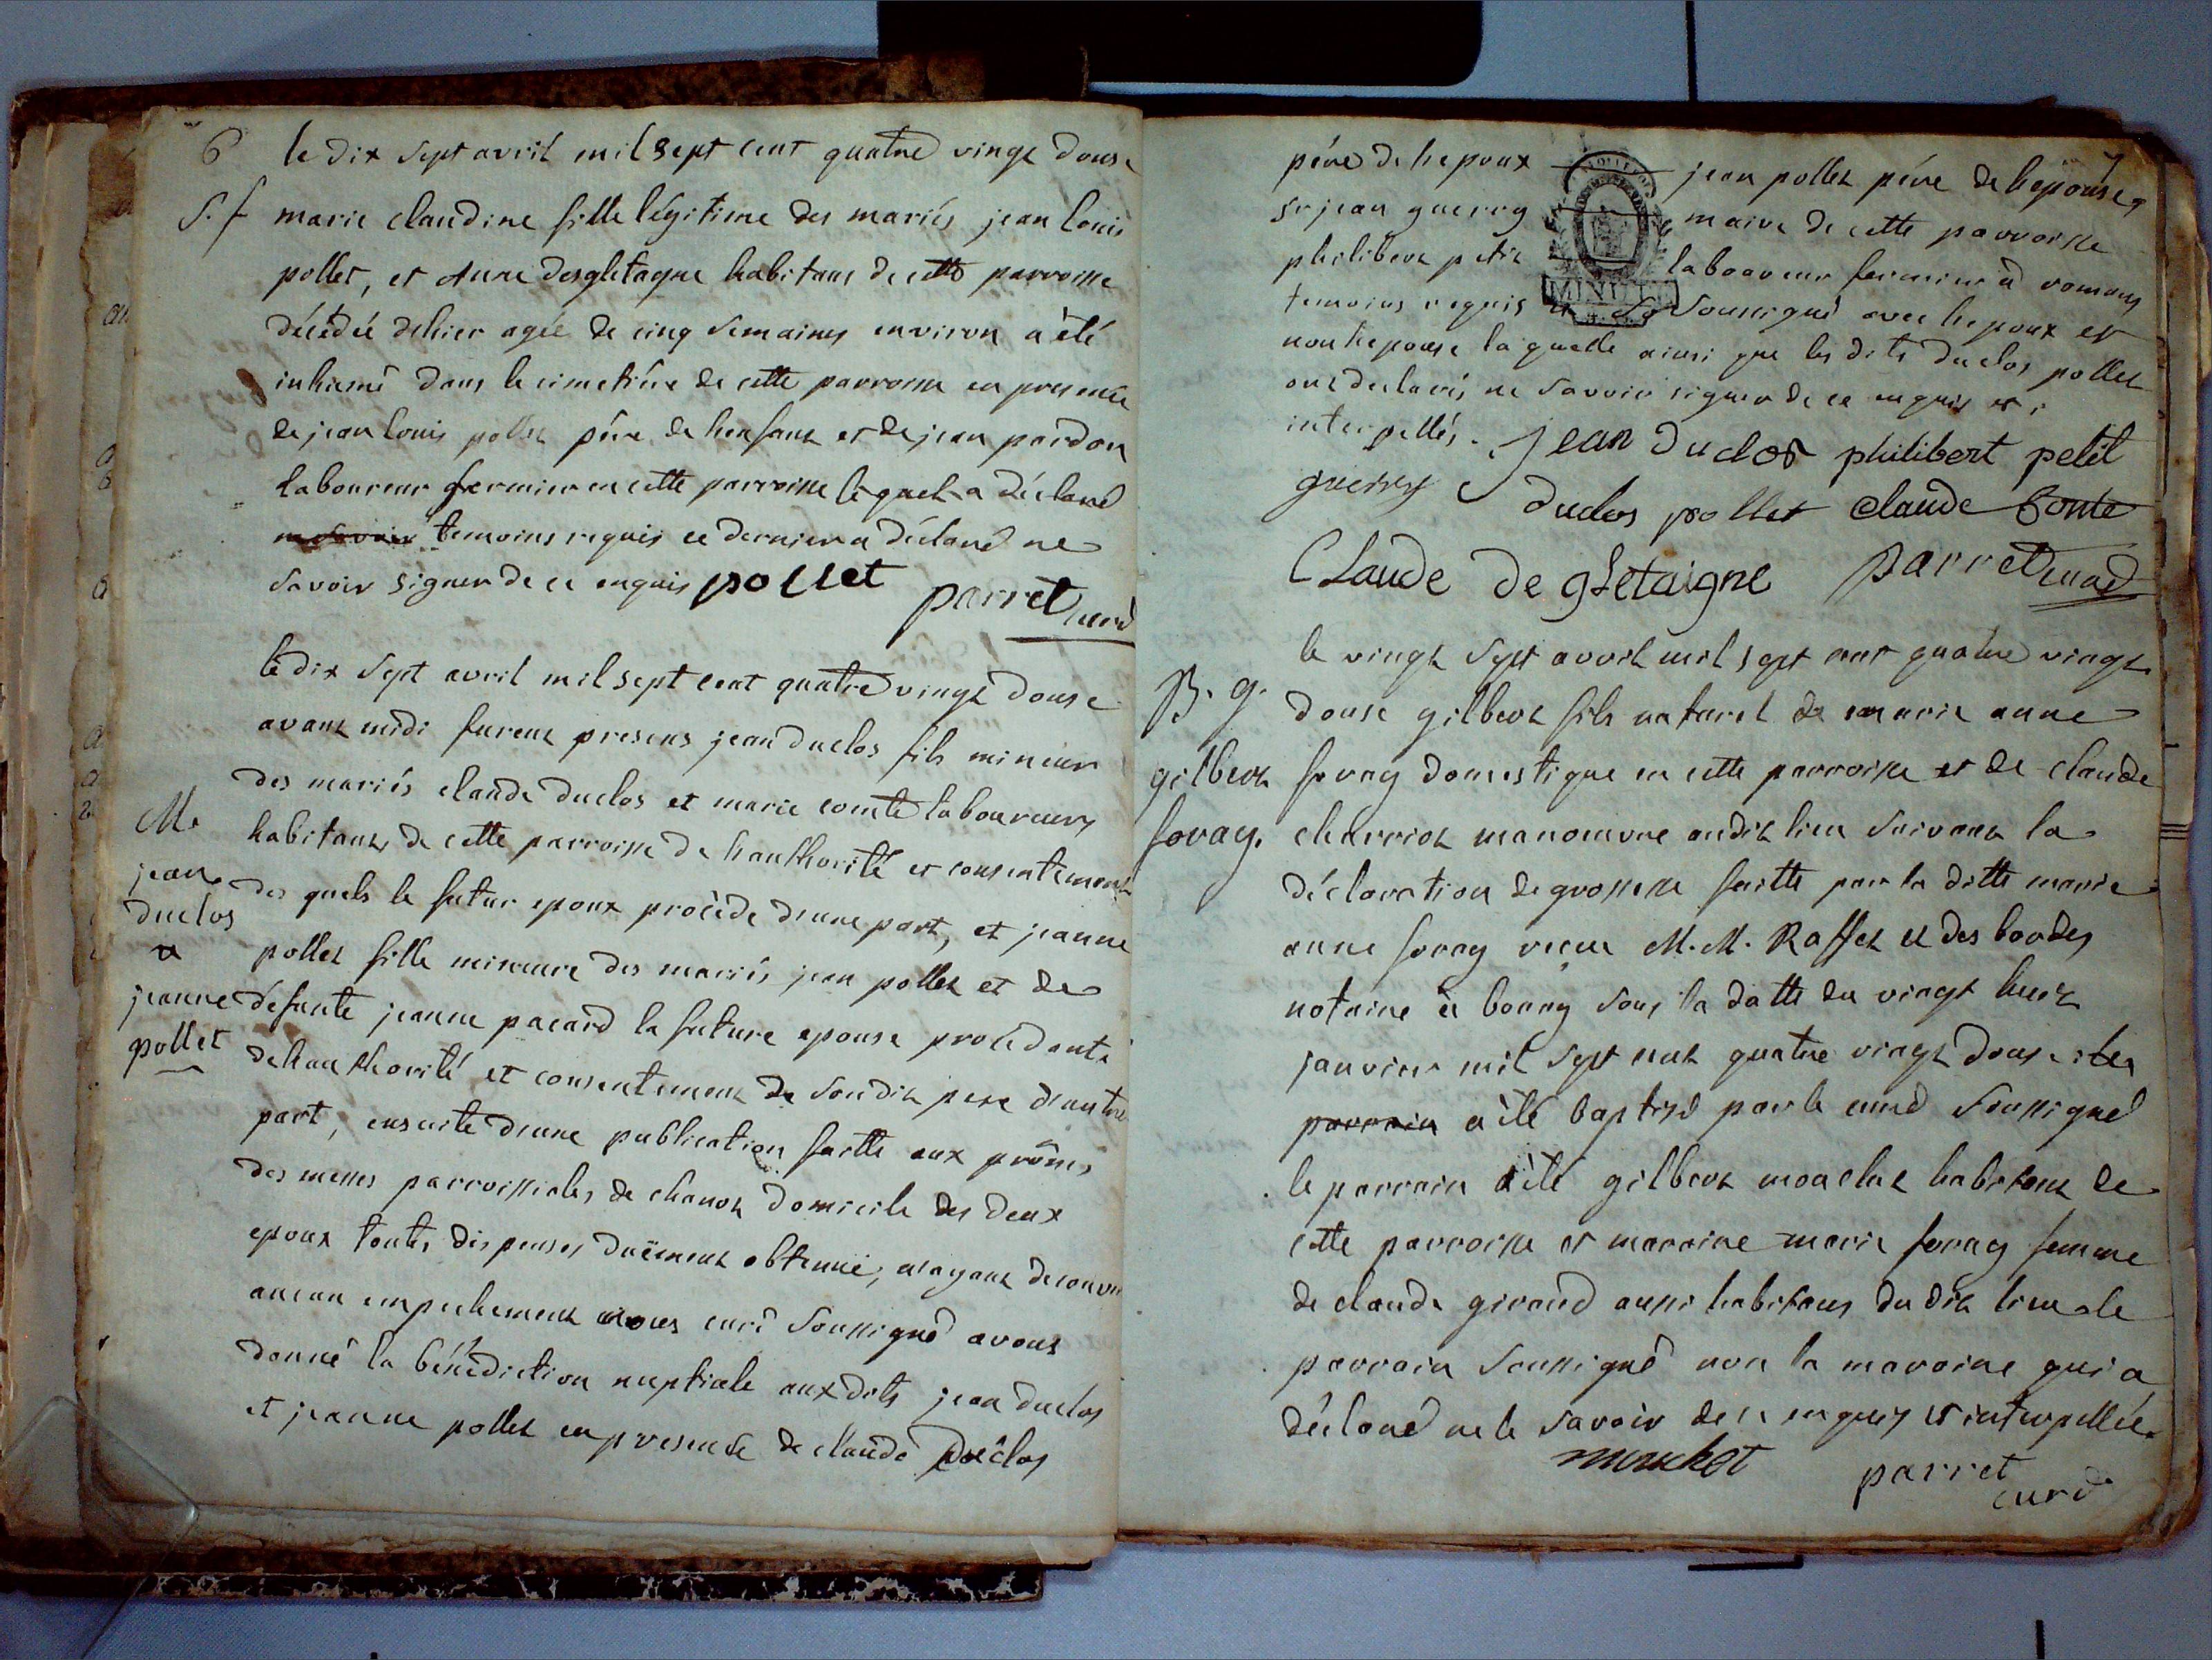 6 le dix sept avril mil sept cent quatre vingt douse
S. f marie claudine fille légitime des mariés jean louis
pollet, et Anne desgletagne habitans de cette parroisse
décédée dehier agée de cinq semaines environ a été
inhumé dans le cimetiére de cette parroisse en presence
de jean louis pollet pére de lenfant et de jean pardon
laboureur fermier en cette parroisse lequel a déclaré
ne savoir temoins requis ce dernier a déclaré ne
savoir signer de ce enquis pollet
parret curé
le dix sept avril mil sept cent quatre vingt douse
avant midi furent presens jean duclos fils mineur
des mariés claude duclos et marie comte laboureurs
M. habitans de cette parroisse de lauthorité et consentement
jean duclos des quels le futur epoux procède d'une part, et jeanne
et pollet fille mineure des mariés jean pollet et de
jeanne défunte jeanne pacard la future epouse procédante
pollet de lauthorité et consentement de son dit pere d'autre
part, ensuite d'une publication faitte aux prônes
des messes parroissiales de chanoz domicile des deux
epoux toutes dispenses duëment obtenuë, n'ayant decouvert
aucun empechement nous curé soussigné avons
donné la bénédiction nuptiale auxdits jean duclos
et jeanne pollet en presence de claude duclos
pére de lepoux jean pollet pére de lepouse
sr jean guerry maire de cette parroisse
philibert petit laboureur fermier à romans
temoins requis et soussigné avec lepoux et
non lepouse la quelle ainsi que les dits duclos pollet
ont declarés ne savoir signer de ce enquis et
interpellés. jean duclos philibert petit
guerry duclos pollet claude Conte
Claude de gletaigne parret curé
le vingt sept avril mil sept cent quatre vingt
B. g. douse gilbert fils naturel de marie anne
gilbert foray domestique en cette parroisse et de claude
foray. charriot manoeuvre audit lieu suivant la
déclaration de grossesse faitte par la ditte marie
anne foray reçue M. M. Raffet et des bordes
notaire à bourg sous la datte du vingt huit
janvier mil sept cent quatre vingt douse
parrain a été baptisé par le curé soussigné
le parrain a été gilbert mouchet habitant de
cette parroisse et marraine marie foray femme
de claude giraud aussi habitans du dit lieu le
parrain soussigné non la marraine qui a
déclaré ne le savoir de ce enquis et interpellée.
mouchet parret
curé
MINUTE